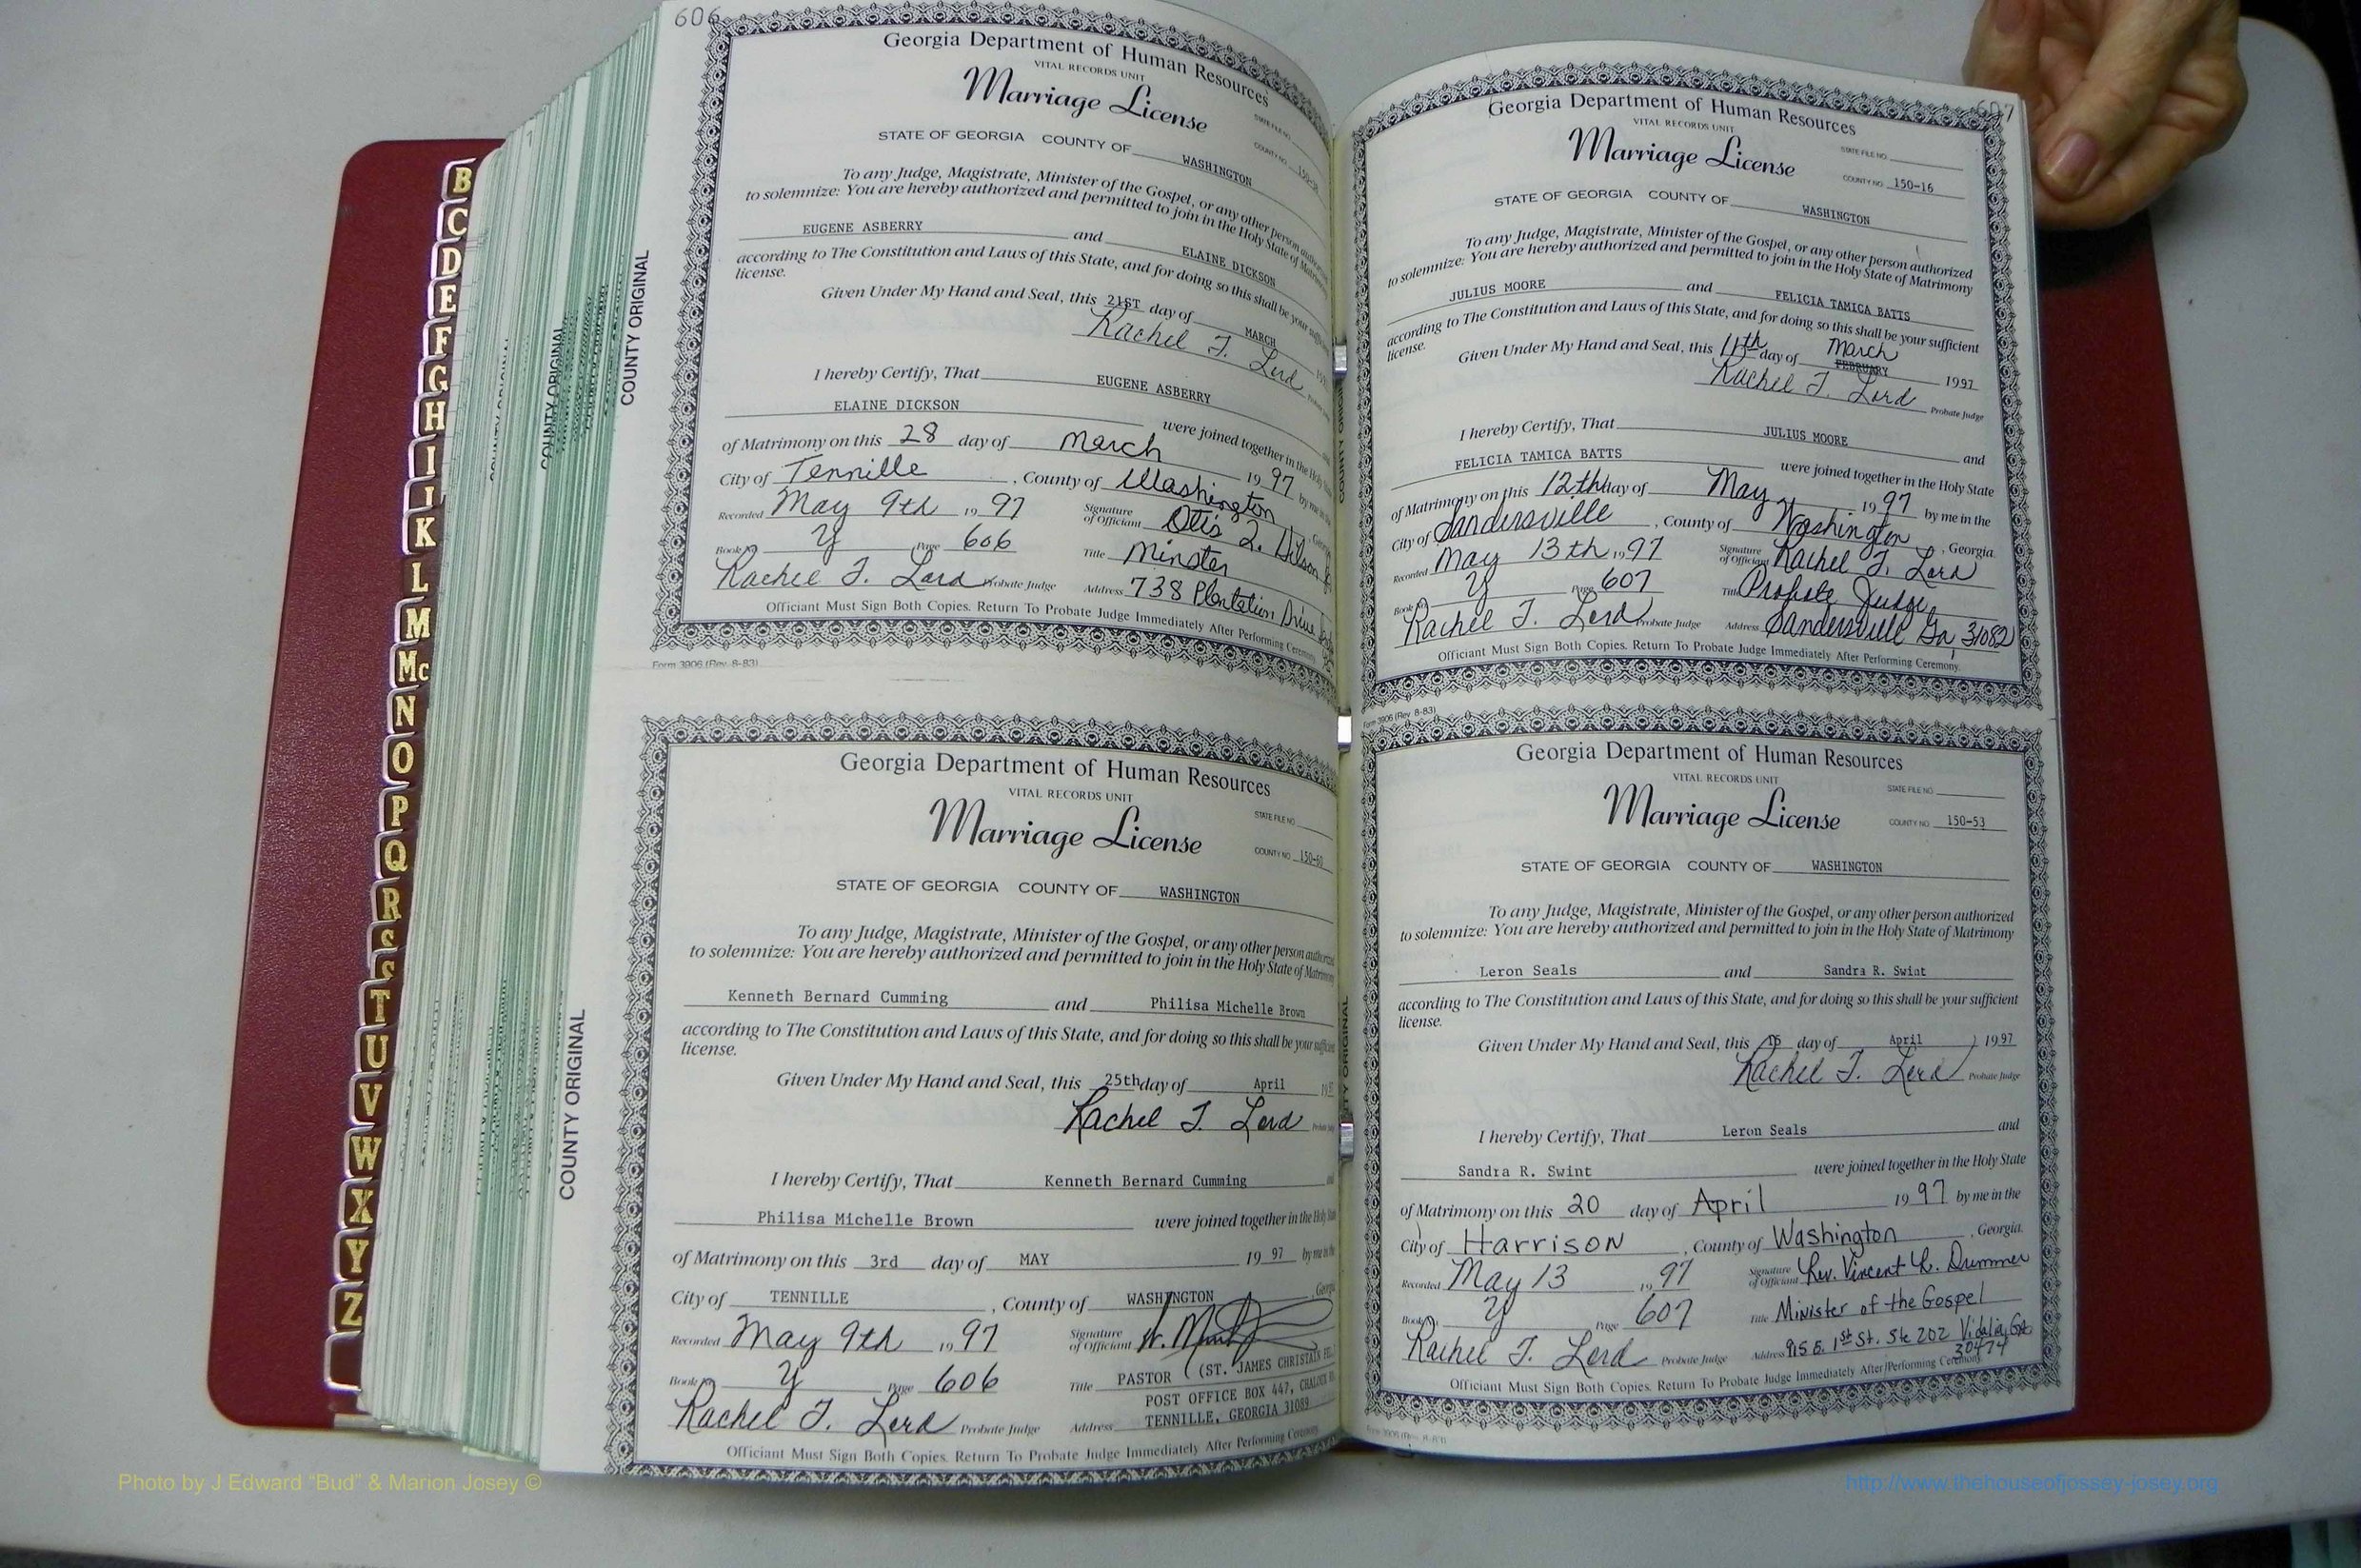 606
Georgia Department of Human Resources
VITAL RECORDS UNIT
Marriage License
STATE FILE NO.
COUNTY NO.
STATE OF GEORGIA COUNTY OF WASHINGTON
To any Judge, Magistrate, Minister of the Gospel, or any other person authorized
to solemnize: You are hereby authorized and permitted to join in the Holy State of Matrimony
EUGENE ASBERRY and ELAINE DICKSON
according to The Constitution and Laws of this State, and for doing so this shall be your sufficient
license.
Given Under My Hand and Seal, this 21ST day of MARCH
Rachel T. Lord
I hereby Certify, That EUGENE ASBERRY
ELAINE DICKSON were joined together in the Holy
of Matrimony on this 28 day of March 1997 by me in the
City of Tennille, County of Washington, Georgia
Recorded May 9th, 1997 Signature of Officiant Otis L.
Book No. Y Page 606 Title Minster
Rachel T. Lord Probate Judge Address 738 Plantation Drive
Officiant Must Sign Both Copies. Return To Probate Judge Immediately After Performing Ceremony
Form 3906 (Rev. 8-83)
COUNTY ORIGINAL
Georgia Department of Human Resources
VITAL RECORDS UNIT
Marriage License
STATE FILE NO.
COUNTY NO.
STATE OF GEORGIA COUNTY OF WASHINGTON
To any Judge, Magistrate, Minister of the Gospel, or any other person authorized
to solemnize: You are hereby authorized and permitted to join in the Holy State of Matrimony
Kenneth Bernard Cumming and Philisa Michelle Brown
according to The Constitution and Laws of this State, and for doing so this shall be your sufficient
license.
Given Under My Hand and Seal, this 25th day of April
Rachel T. Lord
I hereby Certify, That Kenneth Bernard Cumming and
Philisa Michelle Brown were joined together in the Holy State
of Matrimony on this 3rd day of MAY 1997 by me in the
City of TENNILLE, County of WASHINGTON, Georgia
Recorded May 9th, 1997 Signature of Officiant
Book No. Y Page 606 Title PASTOR (ST. JAMES
POST OFFICE BOX 447,
Rachel T. Lord Probate Judge Address TENNILLE, GEORGIA 31089
Officiant Must Sign Both Copies. Return To Probate Judge Immediately After Performing Ceremony
COUNTY ORIGINAL
607
Georgia Department of Human Resources
VITAL RECORDS UNIT
Marriage License
STATE FILE NO.
COUNTY NO. 150-16
STATE OF GEORGIA COUNTY OF WASHINGTON
To any Judge, Magistrate, Minister of the Gospel, or any other person authorized
to solemnize: You are hereby authorized and permitted to join in the Holy State of Matrimony
JULIUS MOORE and FELICIA TAMICA BATTS
according to The Constitution and Laws of this State, and for doing so this shall be your sufficient
license.
Given Under My Hand and Seal, this 11th day of March FEBRUARY 1997
Rachel T. Lord Probate Judge
I hereby Certify, That JULIUS MOORE and
FELICIA TAMICA BATTS were joined together in the Holy State
of Matrimony on this 12th day of May 1997 by me in the
City of Sandersville, County of Washington, Georgia.
Recorded May 13th, 1997 Signature of Officiant Rachel T. Lord
Book No. Y Page 607 Title Probate Judge
Rachel T. Lord Probate Judge Address Sandersville Ga, 31082
Officiant Must Sign Both Copies. Return To Probate Judge Immediately After Performing Ceremony.
Form 3906 (Rev. 8-83)
Georgia Department of Human Resources
VITAL RECORDS UNIT
Marriage License
STATE FILE NO.
COUNTY NO. 150-53
STATE OF GEORGIA COUNTY OF WASHINGTON
To any Judge, Magistrate, Minister of the Gospel, or any other person authorized
to solemnize: You are hereby authorized and permitted to join in the Holy State of Matrimony
Leron Seals and Sandra R. Swint
according to The Constitution and Laws of this State, and for doing so this shall be your sufficient
license.
Given Under My Hand and Seal, this 15 day of April, 1997
Rachel T. Lord Probate Judge
I hereby Certify, That Leron Seals and
Sandra R. Swint were joined together in the Holy State
of Matrimony on this 20 day of April 1997 by me in the
City of Harrison, County of Washington, Georgia.
Recorded May 13, 1997 Signature of Officiant Rev. Vincent L. Drummer
Book No. Y Page 607 Title Minister of the Gospel
Rachel T. Lord Probate Judge Address 915 E. 1st St. Ste 202 Vidalia, Ga 30474
Officiant Must Sign Both Copies. Return To Probate Judge Immediately After Performing Ceremony.
Form 3906 (Rev. 8-83)
B
C
D
E
F
G
H
I
K
L
M
Mc
N
O
P
Q
R
S
S
T
U
V
W
X
Y
Z
Photo by J Edward "Bud" & Marion Josey ©
http://www.thehouseofjossey-josey.org